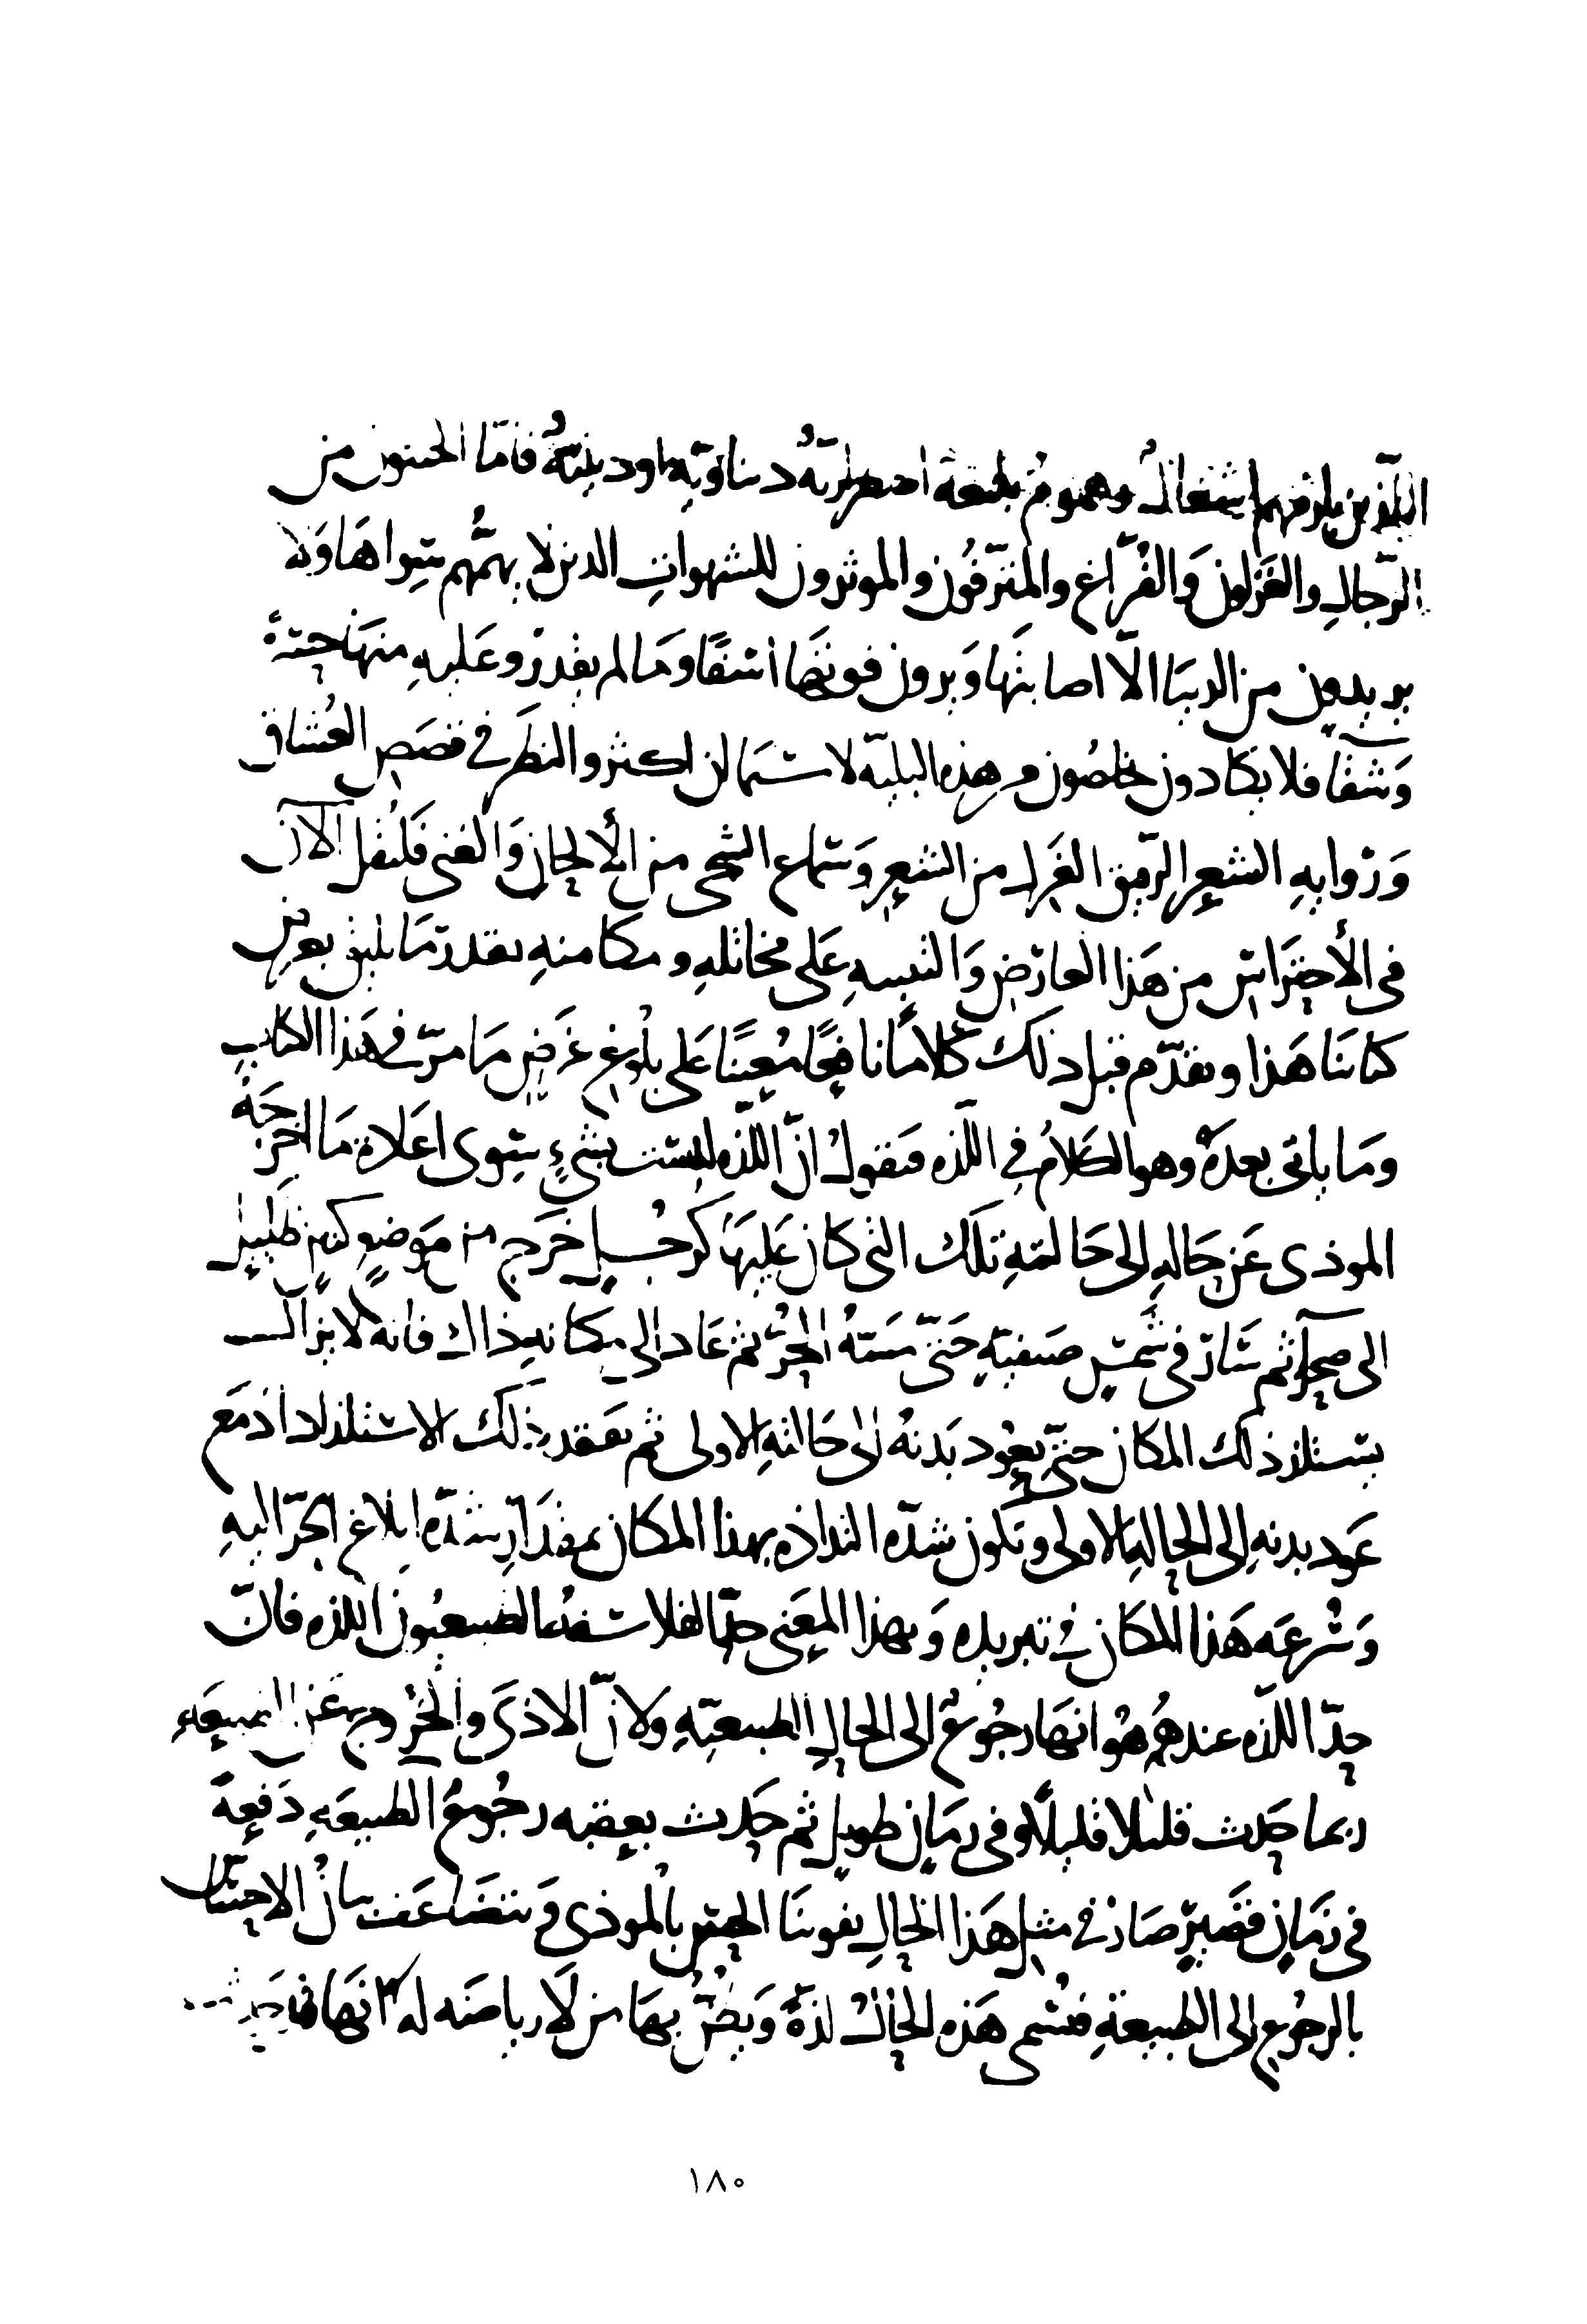 الذين يلزمهم اشغالٌ وهمومٌ بليغة اضطراريّةٌ دنياويّه او دينيّةٌ فامّا الخنثون من
الرّجالِ والغَزِلون وَالفُرّاغ والمترَفُون والموثرون للشهواتِ الذين لا يهمُّهم سِواهَا وَلا
يريدون من الدنيَا الّا اصابتَها وَيرون فوتهَا اسَفًا وَمَا لم يقدروا عَليهِ منهَا حسرةً
وَشقًا فلا يكادون يخلصُون من هذِه البليّه لا سيَمَا ان اكثروا النظَر في قصَصِ العُشاق
وَرَوايهِ الشعِر الرّقيق الغَزِل من الشعِر وَسَماع الشجى من الألحان وَالغنى فَلنقُل الآن
فى الأحتَراس من هَذا العَارض وَالتنبيهِ عَلى مخاتلهِ ومكامنهِ بقدر مَا يليق بغرض
كتابنَا هَذا ونقدّم قبل ذلك كلامًا نافعًا مُعينًا عَلى بلُوغ غَرَض مَا مرّ فى هَذا الكتابِ
ومَا ياتى بعدَهُ وهو الكلامُ فى اللّذه فنقولُ انّ اللّذه ليستَ بشىءٍ سِوى اعَادة مَا اخرَجَهُ
الموذى عَن حَالهِ الى حَالتهِ تلَك التى كان عَليهَا كرجُلٍ خَرَج من مَوضعٍ كنينٍ ظليلٍ
الى صحرآ ثم سَارَ فى شَمسٍ صَيفيّةٍ حَتّى مَسّهُ الحرُّ ثم عَاد الى مكانهِ ذاك فانه لا يزال
يستلذ ذلك المكان حتّى يعُود بَدنُه الى حَالتهِ الاولى ثم يَفقد ذلَك الاستلذاذ مَع
عَود بدنهِ الى الحالهِ الاولى وتكون شدّه التذاذه بهذا المكان بمقدَارِ شدّهِ ابلاغ الحَرّ اليهِ
وَسُرعَه هَذا المكان فى تبريده وَبهذا المعَنى حدّ الفلاسفهُ الطبيعيُون اللذه فانّ
حدّ اللذّه عندهُم هُو انهَا رجُوعٌ الى الحالِ الطبيعيّهِ ولانّ الاذَى والخُروج عَن الطبيعَهِ
ربما حَدث قليلا قليلًا وفى زمَانٍ طويل ثم حَدث بعقبه رجُوعُ الطبيعَهِ دَفعةً
فى زمَانٍ قصَيرٍ صَارَ فى مثل هَذا الحَالِ يفوتنَا الحِسّ بالموذى وَيتضَاعَف بيانُ الاحسَاس
بالرجُوع الى الطبيعةِ فنُسمى هَذه الحَالُ لذةً وَيظنُّ بهَا من لَا رياضَه له انّهَا
١٨٠